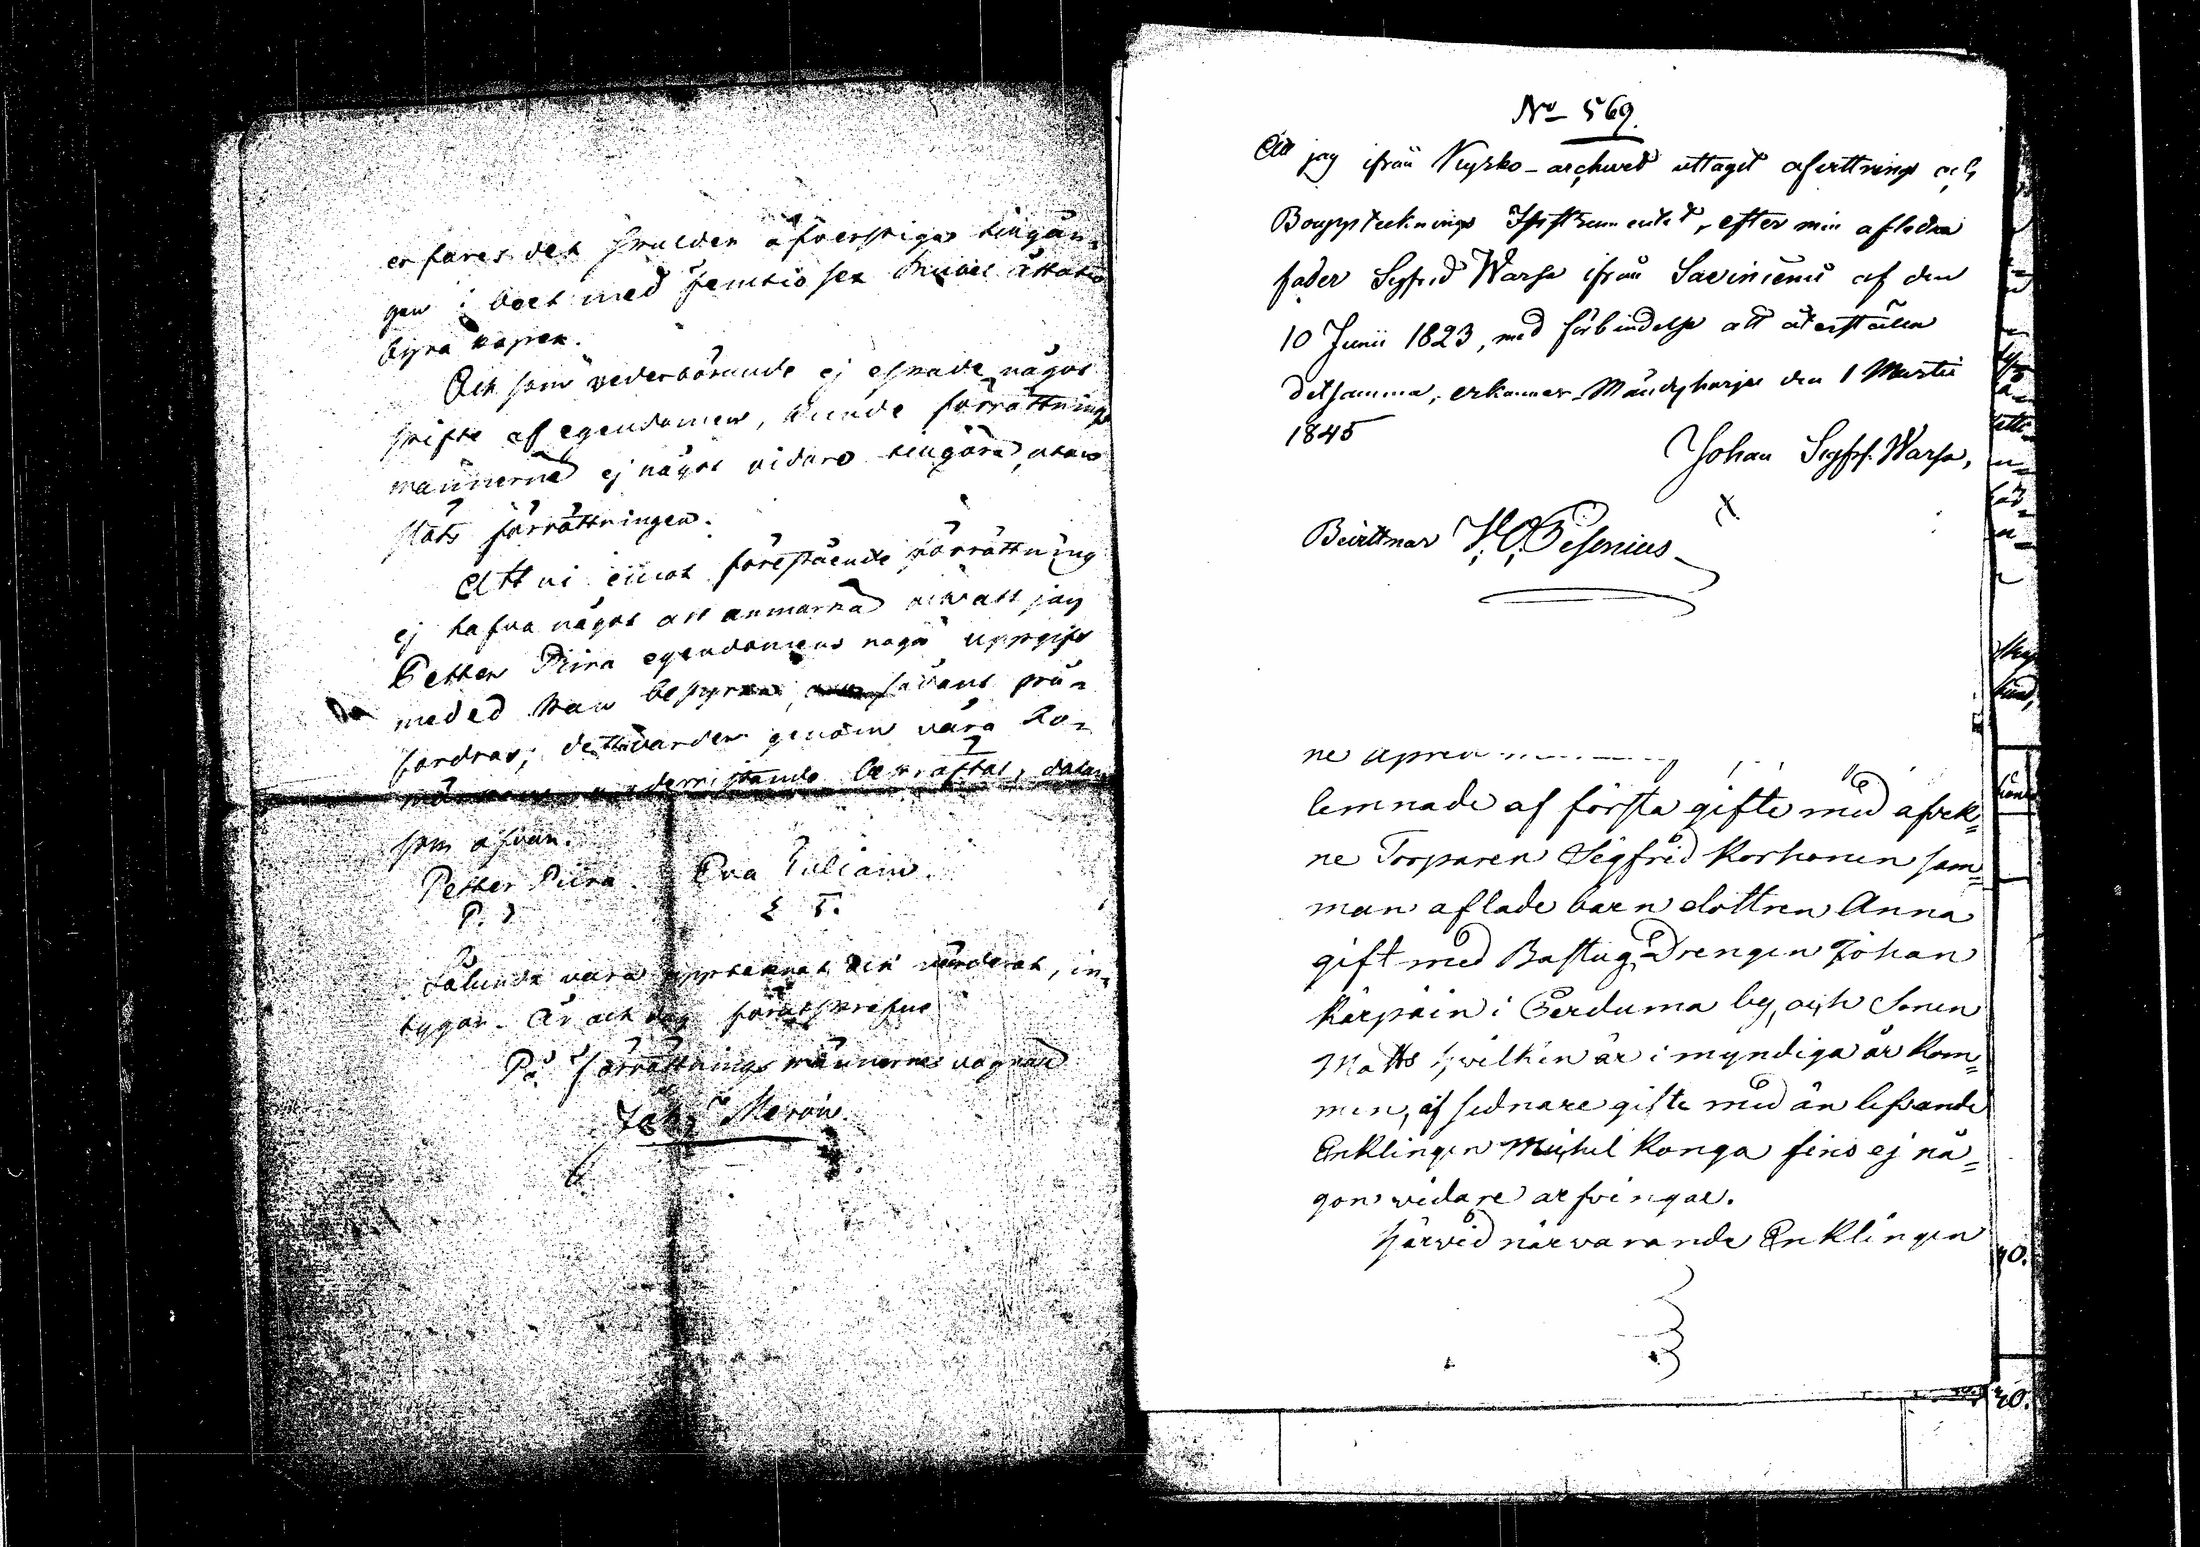 erfares det skulden öfverstiger tingån-
gen i boet med femtio sex Rubel åttatio
fyra kopek.
Och som vederbörande ej eskade något
skifte af egendomen, kunde förrättnings
männerna ej något vidare tingöra, utan
slöts förrättningen.
Att vi emot förestående förrättning
ej hafva något att anmärka och att jag
Petter Piira egendomens noga uppgift
med ed kan bestyrka, sådant på-
fordras, det varder genom våra Bo-
märkens undersittande bekräftat, datum
som ofvan.
Petter Piira Eva Tuliain.
P. P. E T.
Sålunda vara upptecknat och värderat, in-
tygar. År och dag föruskrefne
På Förrättnings männernes vägnar
Joh: Moroin
No 569.
Att jag ifrån Kyrko-archivet uttagit afvittrings och
Bouppteknings Instrumentet, efter min aflidna
fader Sigfrid Warsa ifrån Saviniemi af den
10 Junii 1823, med förbindelse att återställa
detsamma, erkänner Mäntyharju den 1 Martii
1845
Johan Sigfrs. Warsa,
Bevittnar H. O. Pesonius
ne
lemnade af första gifte med afvek=
ne Torparen Sigfrid Korhonen sam=
man aflade barn dottren Anna
gift med Bastug Drengen Johan
Kärpäin i Perduma by, och Sonen
Matts hwilken är i myndiga år kom=
men, af sednare gifte med än lefvande
Enklingen Michel Konga fins ej nå=
gon widare arfvingar.
Härvid närvarande Enklingen